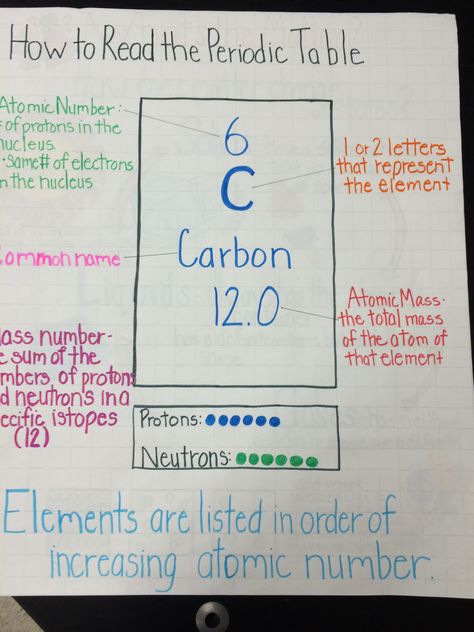 How to Read the Periodic Table
Atomic Number:
of protons in the
nucleus.
·Same # of electrons
in the nucleus
6
C
1 or 2 letters
that represent
the element
ommon name
Carbon
12.0
Atomic Mass-
the total mass
of the atom of
that element
ass number-
e sum of the
mbers, of protons
d neutron's in a
ecific istopes
(12)
Protons:
Neutrons:
Elements are listed in order of
increasing atomic number.